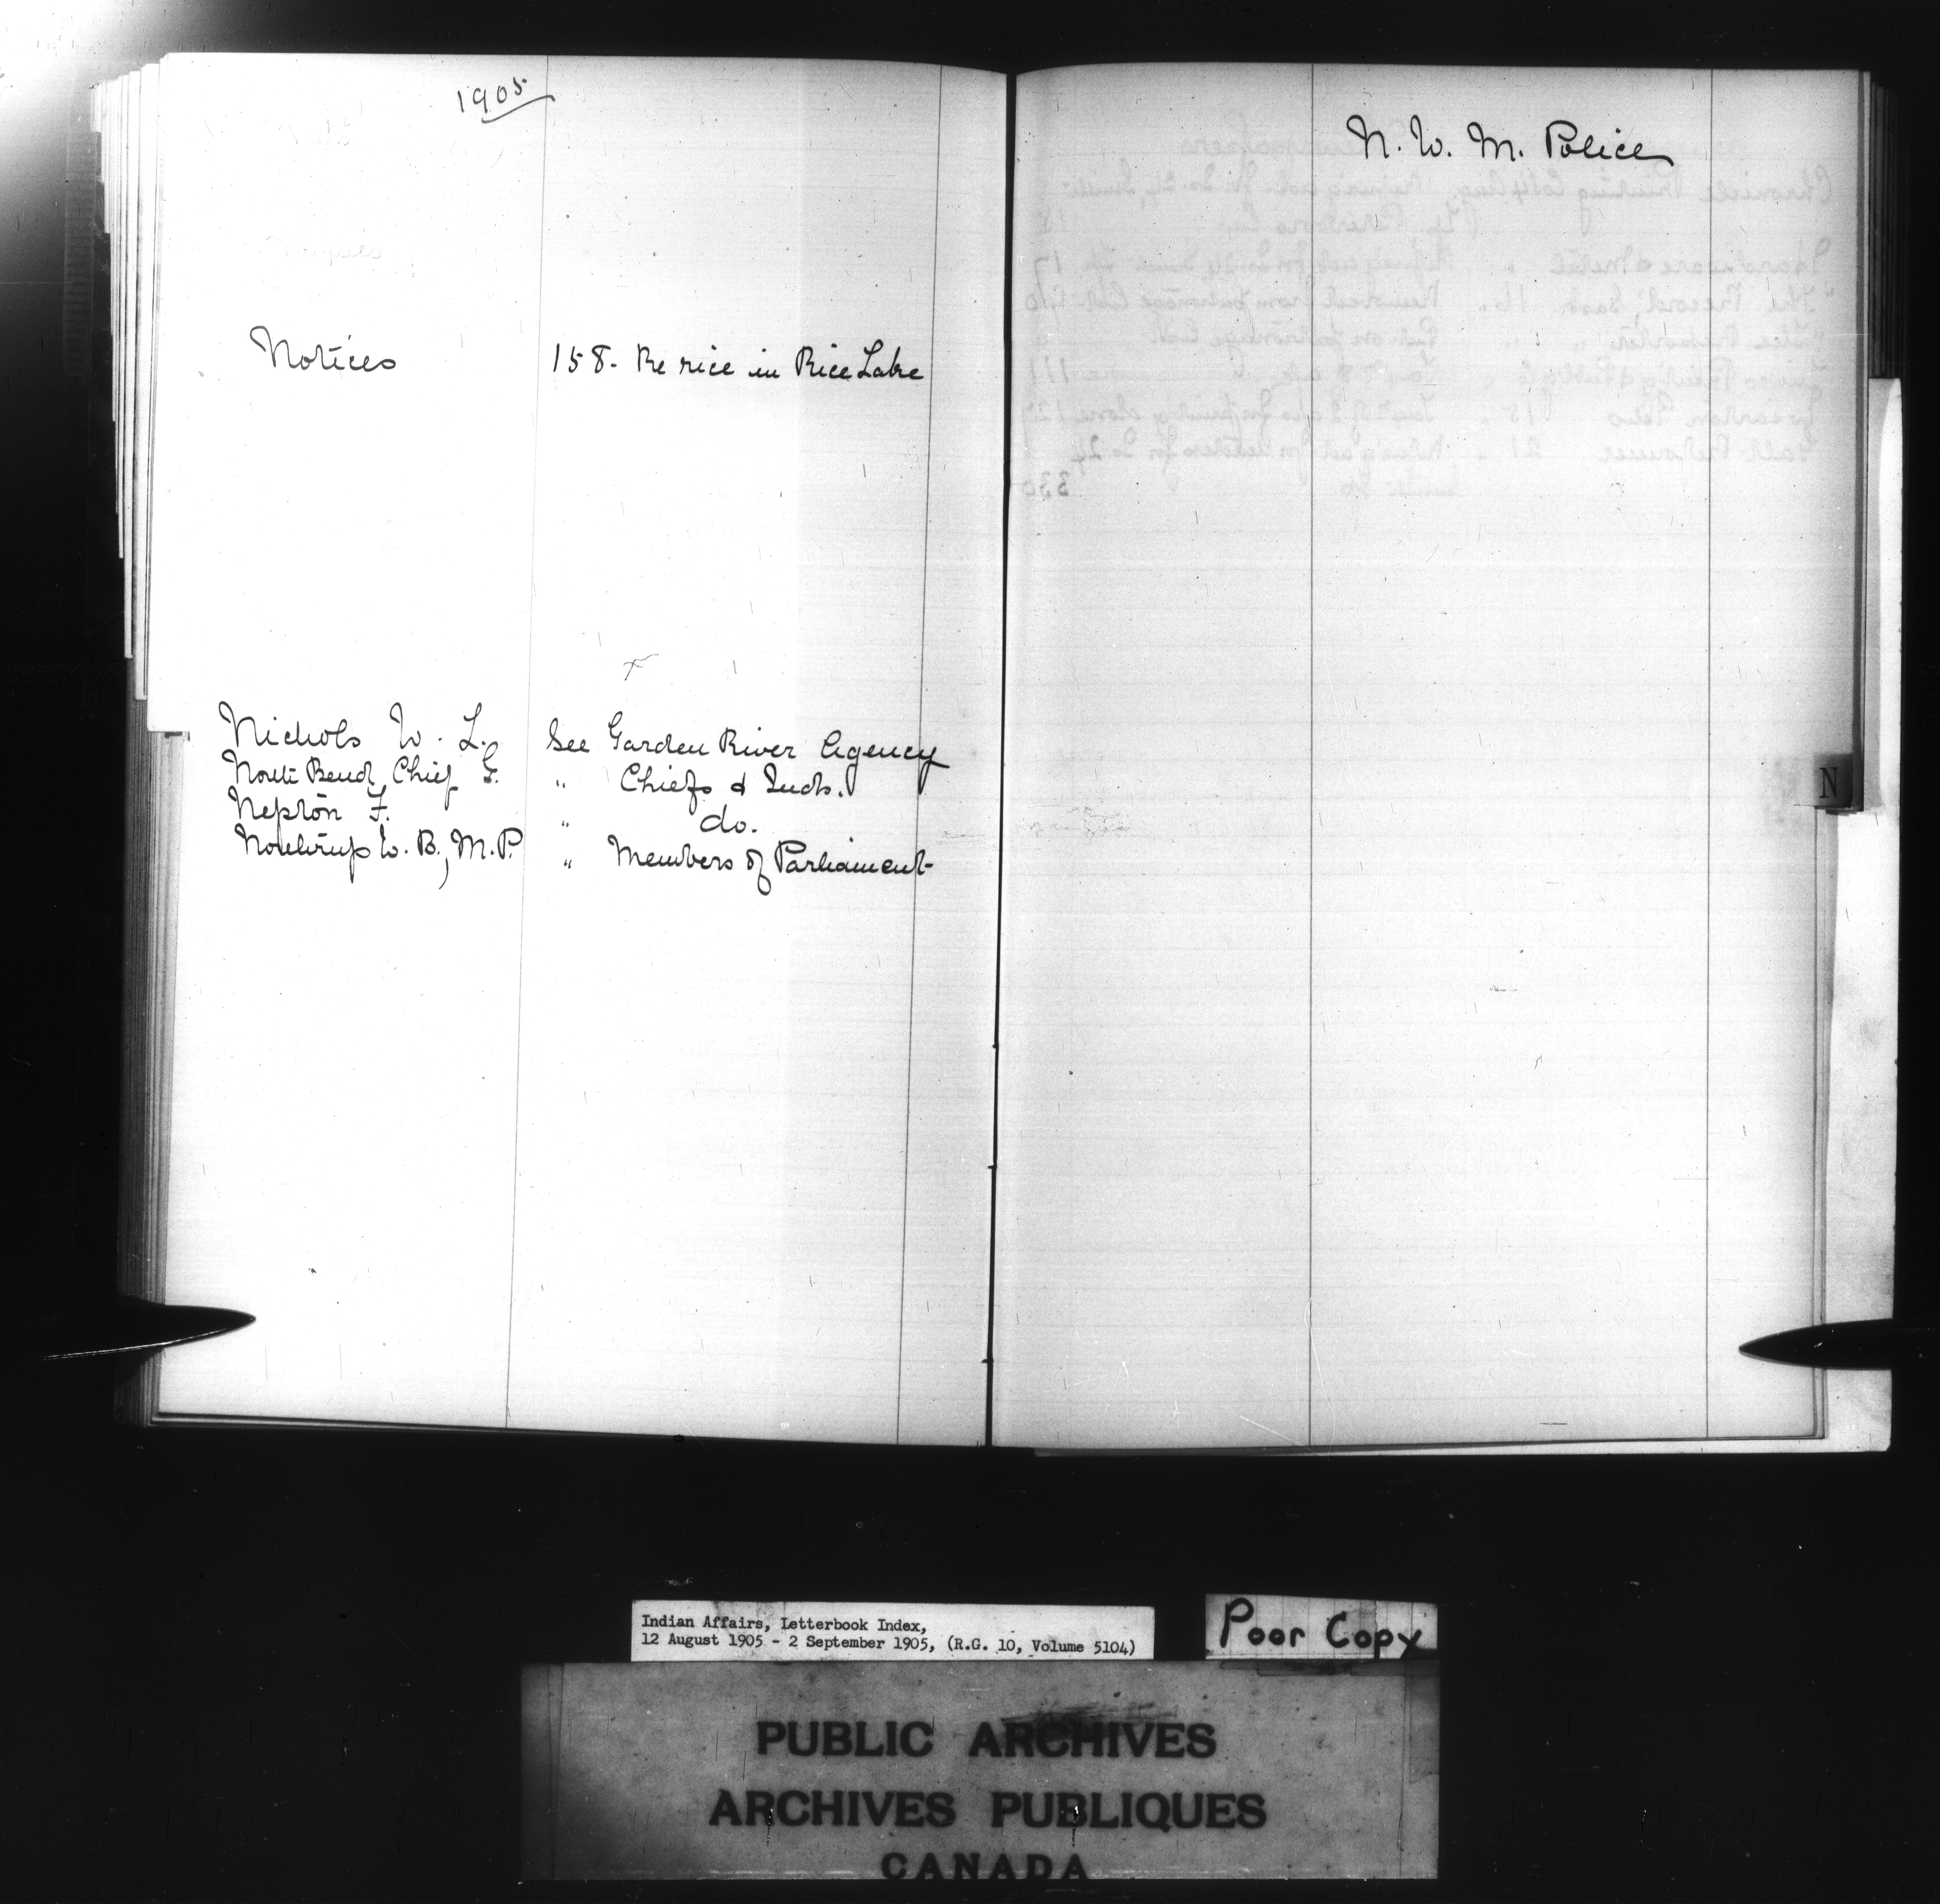 1905
Notices 158. Re rice in Rice Lake
Nichols W. L. See Garden River Agency
North Bend, Chief G. " Chiefs & Inds.
Nepton F. " do.
Northrup W. B., M.P. " Members of Parliament
N. W. M. Police
N
Indian Affairs, Letterbook Index,
12 August 1905 - 2 September 1905, (R.G. 10, Volume 5104)
Poor Copy
PUBLIC ARCHIVES
ARCHIVES PUBLIQUES
CANADA